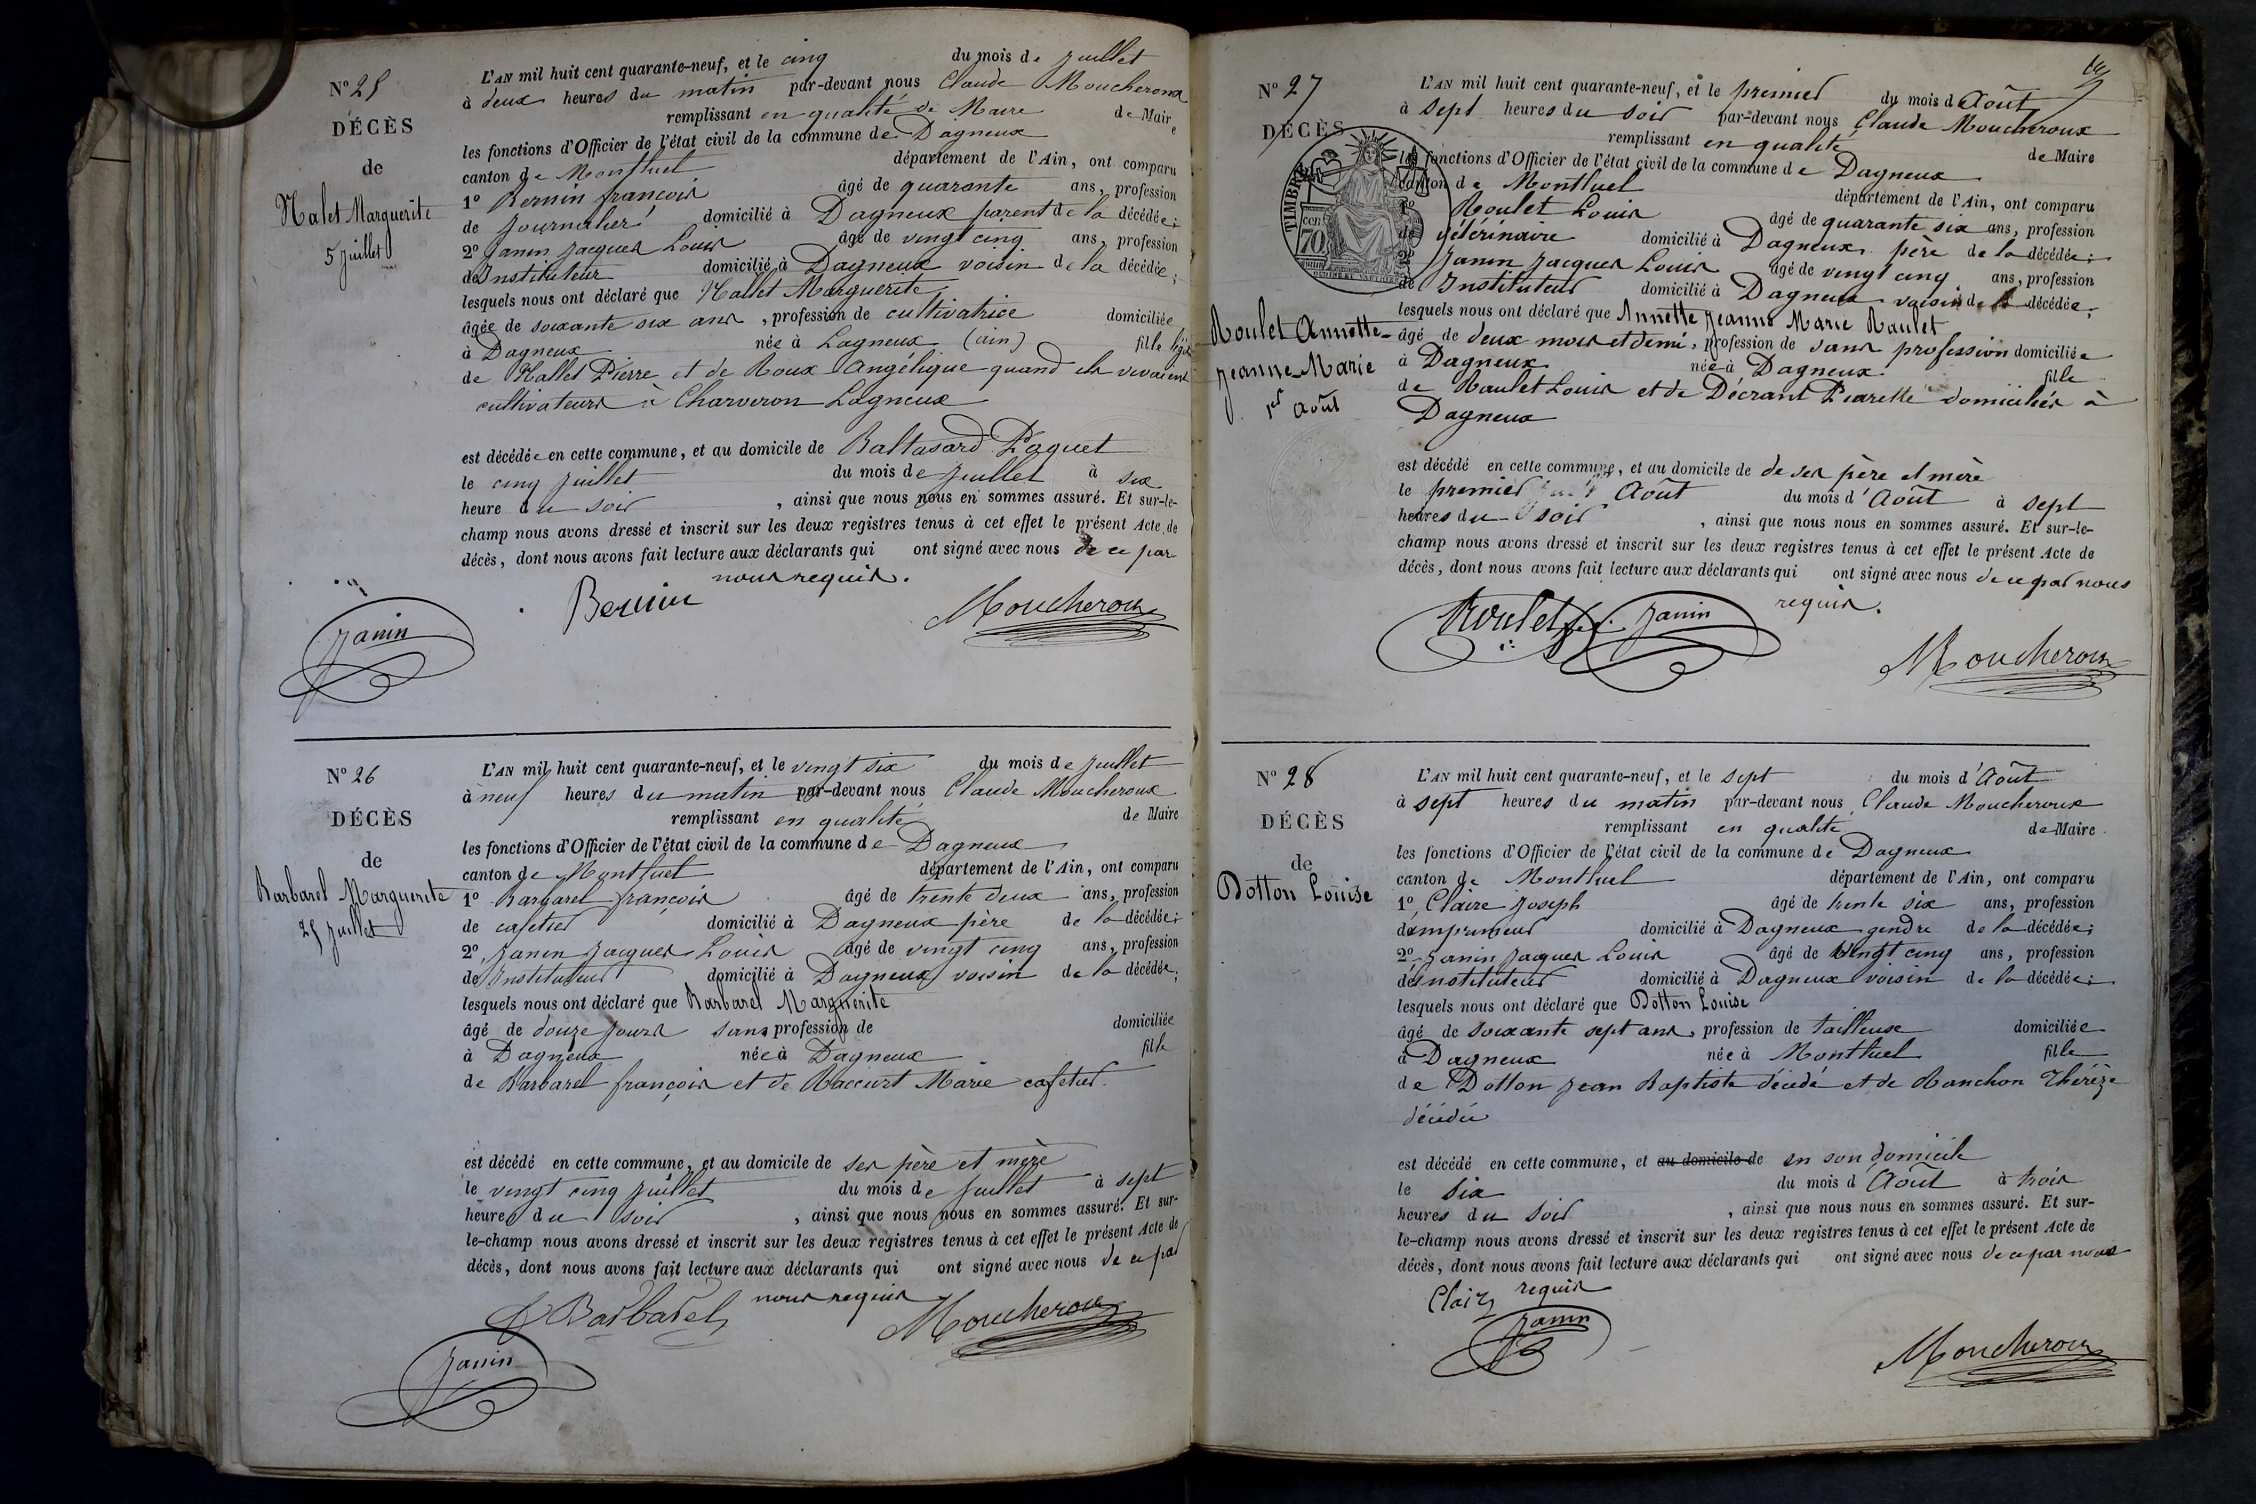 N° 25
DÉCÈS
de
Halet Marguerite
5 juillet
L'AN mil huit cent quarante-neuf, et le cinq du mois de juillet
à deux heures du matin par-devant nous Claude Moucheroux
remplissant en qualité de Maire de Maire
les fonctions d'Officier de l'état civil de la commune de Dagneux
canton de Montluel département de l'Ain, ont comparu
1° Bernin françois âgé de quarante ans, profession
de journalier domicilié à Dagneux parent de la décédée;
2° Janin Jacques Louis âgé de vingt cinq ans, profession
de Instituteur domicilié à Dagneux voisin de la décédée;
lesquels nous ont déclaré que Hallet Marguerite
âgée de soixante six ans, profession de cultivatrice domiciliée
à Dagneux née à Lagneux (ain) fille
de Hallet Pierre et de Roux Angélique quand ils vivaient
cultivateurs à Charveron Lagneux
est décédée en cette commune, et au domicile de Baltasard Paquet
le cinq juillet du mois de juillet à six
heure du soir, ainsi que nous nous en sommes assuré. Et sur-le-
champ nous avons dressé et inscrit sur les deux registres tenus à cet effet le présent Acte de
décès, dont nous avons fait lecture aux déclarants qui ont signé avec nous de ce par
nous requis.
Bernin
Moucheroux
Janin
N° 26
DÉCÈS
de
Barbarel Marguerite
25 juillet
L'AN mil huit cent quarante-neuf, et le vingt six du mois de juillet
à neuf heures du matin par-devant nous Claude Moucheroux
remplissant en qualité de Maire
les fonctions d'Officier de l'état civil de la commune de Dagneux
canton de Montluel département de l'Ain, ont comparu
1° Barbarel françois âgé de trente deux ans, profession
de cafetier domicilié à Dagneux père de la décédée;
2° Janin Jacques Louis âgé de vingt cinq ans, profession
de Instituteur domicilié à Dagneux voisin de la décédée;
lesquels nous ont déclaré que Barbarel Marguerite
âgé de douze jours sans profession de domiciliée
à Dagneux née à Dagneux fille
de Barbarel françois et de Raccurt Marie cafetier
est décédé en cette commune, et au domicile de ses père et mère
le vingt cinq juillet du mois de juillet à sept
heures du soir, ainsi que nous nous en sommes assuré. Et sur-
le-champ nous avons dressé et inscrit sur les deux registres tenus à cet effet le présent Acte de
décès, dont nous avons fait lecture aux déclarants qui ont signé avec nous de ce par
nous requis
Barbarel
Moucheroux
Janin
N° 27
DÉCÈS
TIMBRE
70
Roulet Annette-
Jeanne-Marie
1er Août
L'AN mil huit cent quarante-neuf, et le premier du mois d Août
à sept heures du soir par-devant nous Claude Moucheroux
remplissant en qualité de Maire
les fonctions d'Officier de l'état civil de la commune de Dagneux
canton de Montluel département de l'Ain, ont comparu
1° Roulet Louis âgé de quarante six ans, profession
de vétérinaire domicilié à Dagneux père de la décédée;
2° Janin Jacques Louis âgé de vingt cinq ans, profession
de Instituteur domicilié à Dagneux voisin de la décédée;
lesquels nous ont déclaré que Annette Jeanne Marie Raulet
âgé de deux mois et demi, profession de sans profession domiciliée
à Dagneux née à Dagneux fille
de Raulet Louis et de Décrant Pierrette domiciliés à
Dagneux
est décédé en cette commune, et au domicile de de ses père et mère
le premier Août du mois d'Août à sept
heures du soir, ainsi que nous nous en sommes assuré. Et sur-le-
champ nous avons dressé et inscrit sur les deux registres tenus à cet effet le présent Acte de
décès, dont nous avons fait lecture aux déclarants qui ont signé avec nous de ce par nous
requis.
Roulet
Janin
Moucheroux
N° 28
DÉCÈS
de
Dotton Louise
L'AN mil huit cent quarante-neuf, et le sept du mois d'Août
à sept heures du matin par-devant nous Claude Moucheroux
remplissant en qualité de Maire
les fonctions d'Officier de l'état civil de la commune de Dagneux
canton de Montluel département de l'Ain, ont comparu
1° Claire Joseph âgé de trente six ans, profession
d'imprimeur domicilié à Dagneux gendre de la décédée;
2° Janin Jacques Louis âgé de vingt cinq ans, profession
de instituteur domicilié à Dagneux voisin de la décédée;
lesquels nous ont déclaré que Dotton Louise
âgé de soixante sept ans, profession de tailleuse domiciliée
à Dagneux née à Montluel fille
de Dotton Jean Baptiste décédé et de Ranchon Thérèze
décédée
est décédé en cette commune, et au domicile de en son domicile
le six du mois d Août à trois
heures du soir, ainsi que nous nous en sommes assuré. Et sur-
le-champ nous avons dressé et inscrit sur les deux registres tenus à cet effet le présent Acte de
décès, dont nous avons fait lecture aux déclarants qui ont signé avec nous de ce par nous
requis
Clair
Janin
Moucheroux